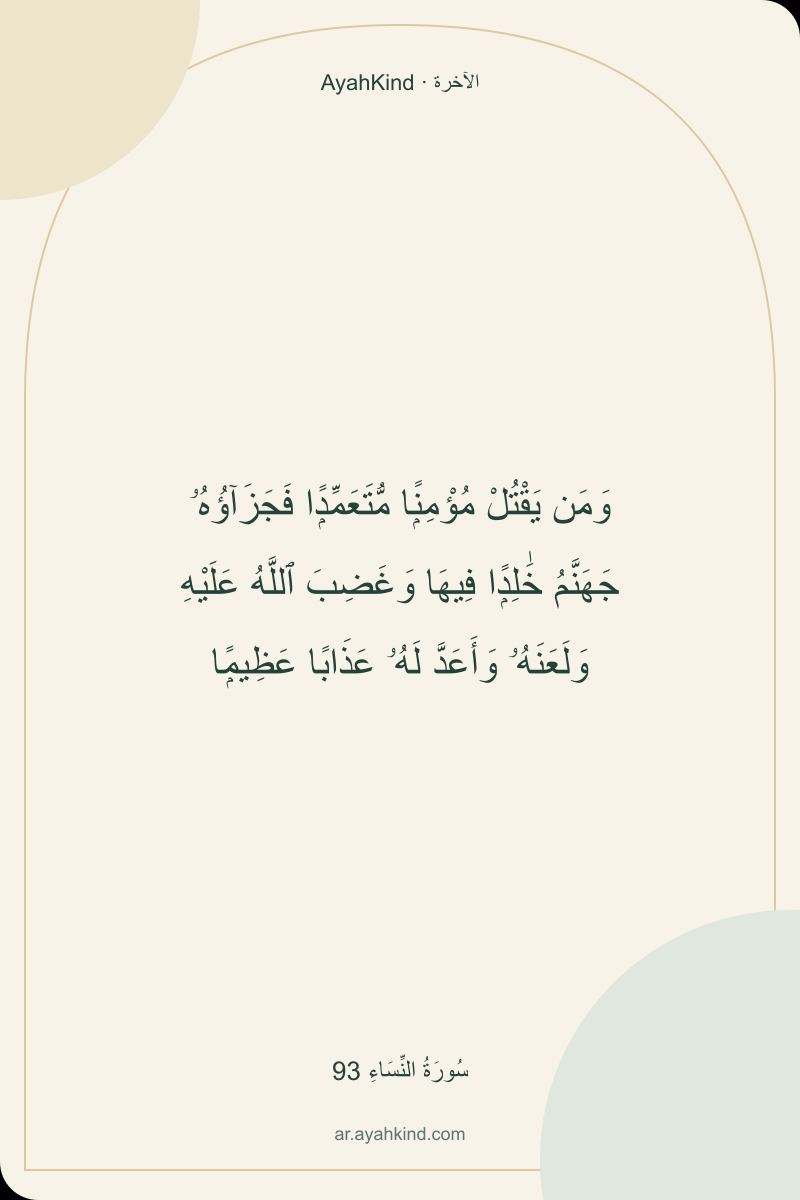 AyahKind · الآخرة
وَمَن يَقْتُلْ مُؤْمِنًۭا مُّتَعَمِّدًۭا فَجَزَآؤُهُۥ
جَهَنَّمُ خَٰلِدًۭا فِيهَا وَغَضِبَ ٱللَّهُ عَلَيْهِ
وَلَعَنَهُۥ وَأَعَدَّ لَهُۥ عَذَابًا عَظِيمًۭا
سُورَةُ النِّسَاءِ 93
ar.ayahkind.com